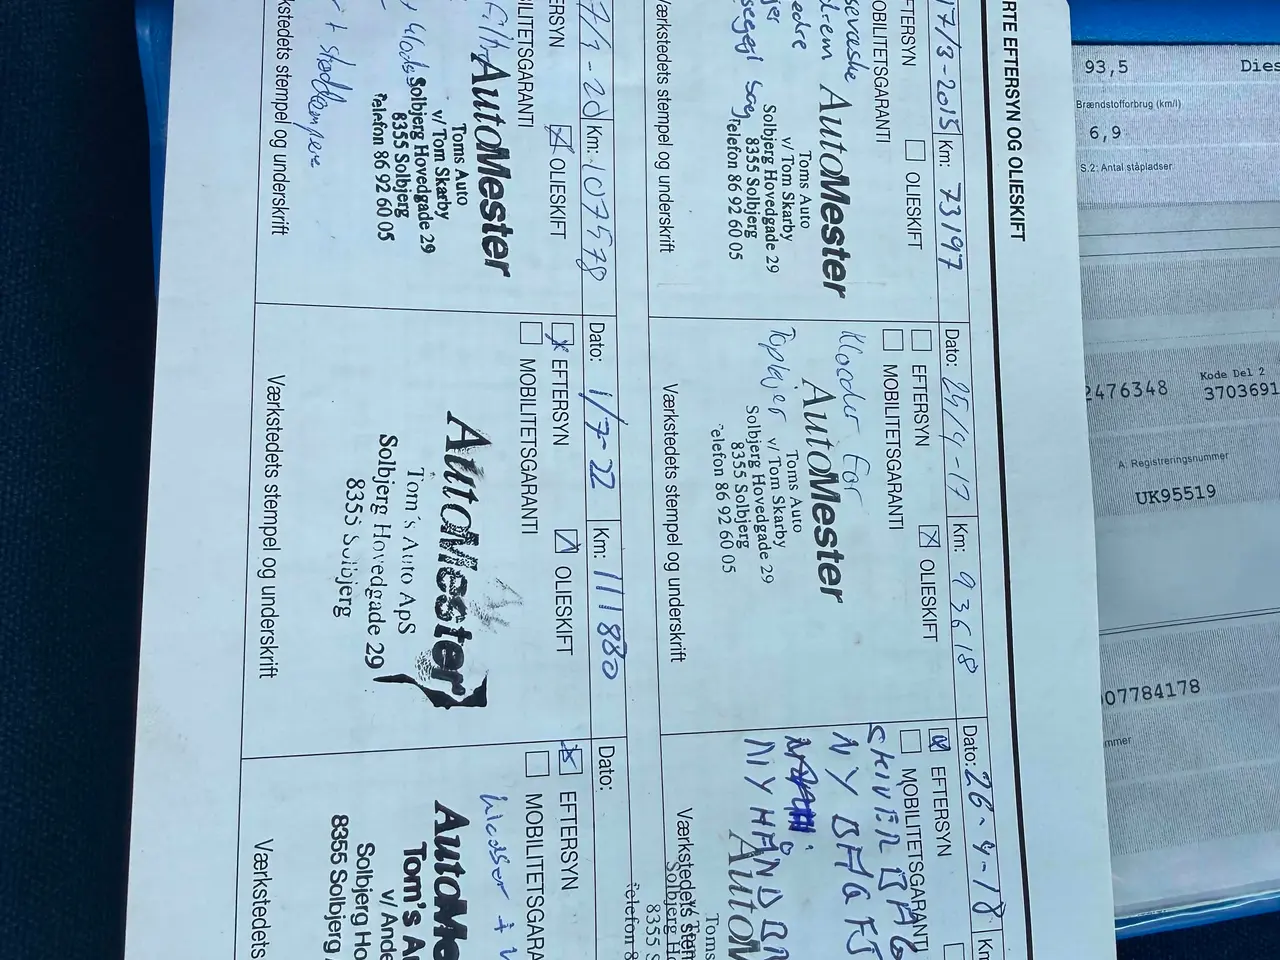 RTE EFTERSYN OG OLIESKIFT
17/3-2015 Km: 73197
FTERSYN
OLIESKIFT
MOBILITETSGARANTI
AutoMester
Toms Auto
v/ Tom Skarby
Solbjerg Hovedgade 29
8355 Solbjerg
Telefon 86 92 60 05
Værkstedets stempel og underskrift
Dato: 25/4-17 Km: 93618
EFTERSYN
OLIESKIFT
MOBILITETSGARANTI
Klodser for
AutoMester
Toms Auto
v/ Tom Skarby
Solbjerg Hovedgade 29
8355 Solbjerg
elefon 86 92 60 05
Værkstedets stempel og underskrift
Dato: 26-4-18 Km
EFTERSYN
MOBILITETSGARANTI
SKIVER BAG
NY BAG FJ
NY HÅNDBR
AutoM
Toms
Solbjerg H
8355 S
elefon 8
Værkstedets stem
7/1-20 Km: 107578
ERSYN
OLIESKIFT
ILITETSGARANTI
AutoMester
Toms Auto
v/ Tom Skarby
Solbjerg Hovedgade 29
8355 Solbjerg
Telefon 86 92 60 05
kstedets stempel og underskrift
Dato: 1/7-22 Km: 111880
EFTERSYN
OLIESKIFT
MOBILITETSGARANTI
AutoMester
Tom's Auto ApS
Solbjerg Hovedgade 29
8355 Solbjerg
Værkstedets stempel og underskrift
Dato:
EFTERSYN
MOBILITETSGARA
Klodser +
AutoMe
Tom's A
v/ Ande
Solbjerg Ho
8355 Solbjerg
Værkstedets
93,5
Dies
Brændstofforbrug (km/l)
6,9
S.2: Antal ståpladser
2476348
Kode Del 2
3703691
A: Registreringsnummer
UK95519
07784178
mmer